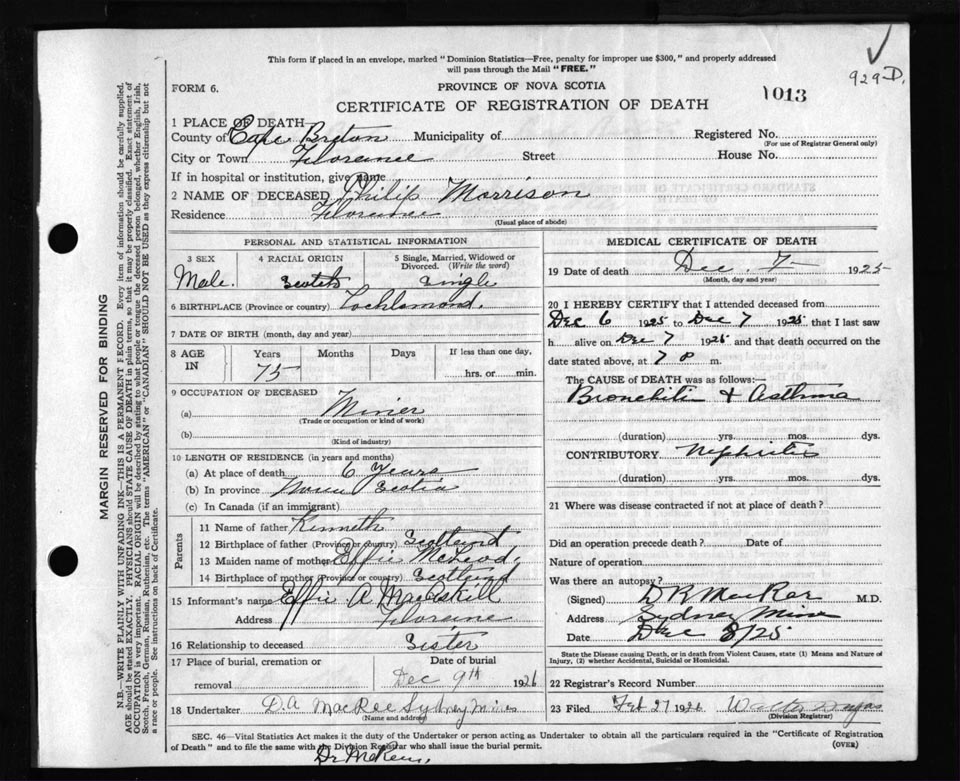 This form if placed in an envelope, marked "Dominion Statistics—Free, penalty for improper use $300," and properly addressed
will pass through the Mail "FREE."
929 D.
FORM 6.
PROVINCE OF NOVA SCOTIA
1013
CERTIFICATE OF REGISTRATION OF DEATH
1 PLACE OF DEATH
County of Cape Breton Municipality of Registered No.
(For use of Registrar General only)
City or Town Florence Street House No.
If in hospital or institution, give name
2 NAME OF DECEASED Philip Morrison
Residence Florence
(Usual place of abode)
PERSONAL AND STATISTICAL INFORMATION
3 SEX 4 RACIAL ORIGIN 5 Single, Married, Widowed or
Divorced. (Write the word)
Male. Scotch Single
6 BIRTHPLACE (Province or country) Lochlomond.
7 DATE OF BIRTH (month, day and year)
8 AGE IN Years Months Days If less than one day,
75 hrs. or min.
9 OCCUPATION OF DECEASED
(a) Miner
(Trade or occupation or kind of work)
(b)
(Kind of industry)
10 LENGTH OF RESIDENCE (in years and months)
(a) At place of death 6 years
(b) In province Nova Scotia
(c) In Canada (if an immigrant)
Parents
11 Name of father Kenneth
12 Birthplace of father (Province or country) Scotland
13 Maiden name of mother Effie McLeod,
14 Birthplace of mother (Province or country) Scotland
15 Informant's name Effie A MacAskill
Address Florence
16 Relationship to deceased Sister
17 Place of burial, cremation or removal Date of burial
Dec 9th 1926
18 Undertaker D.A MacRae Sydney Mines
(Name and address)
MEDICAL CERTIFICATE OF DEATH
19 Date of death Dec. 7 1925
(Month, day and year)
20 I HEREBY CERTIFY that I attended deceased from
Dec 6 1925 to Dec 7 1925 that I last saw
h alive on Dec 7 1925 and that death occurred on the
date stated above, at 7 m.
The CAUSE OF DEATH was as follows:—
Bronchitis & Asthma
(duration) yrs. mos. dys.
CONTRIBUTORY Nephritis
(duration) yrs. mos. dys.
21 Where was disease contracted if not at place of death?
Did an operation precede death? Date of
Nature of operation
Was there an autopsy?
(Signed) M.D.
Address Sydney Mines
Date Dec 8/25
State the Disease causing Death, or in death from Violent Causes, state (1) Means and Nature of
Injury, (2) whether Accidental, Suicidal or Homicidal.
22 Registrar's Record Number
23 Filed Feb 27 1926 Walter
(Division Registrar)
SEC. 46—Vital Statistics Act makes it the duty of the Undertaker or person acting as Undertaker to obtain all the particulars required in the "Certificate of Registration
of Death" and to file the same with the Division Registrar who shall issue the burial permit.
(OVER)
MARGIN RESERVED FOR BINDING
N.B.—WRITE PLAINLY WITH UNFADING INK—THIS IS A PERMANENT RECORD. Every item of information should be carefully supplied.
AGE should be stated EXACTLY. PHYSICIANS should STATE CAUSE OF DEATH in plain terms, so that it may be properly classified. Exact statement of
OCCUPATION is very important. RACIAL ORIGIN will be described by stating to what people or tongue the deceased person belonged, whether English, Irish,
Scotch, French, German, Russian, Ruthenian, etc. The terms "AMERICAN" or "CANADIAN" SHOULD NOT BE USED as they express citizenship but not
a race or people. See instructions on back of Certificate.